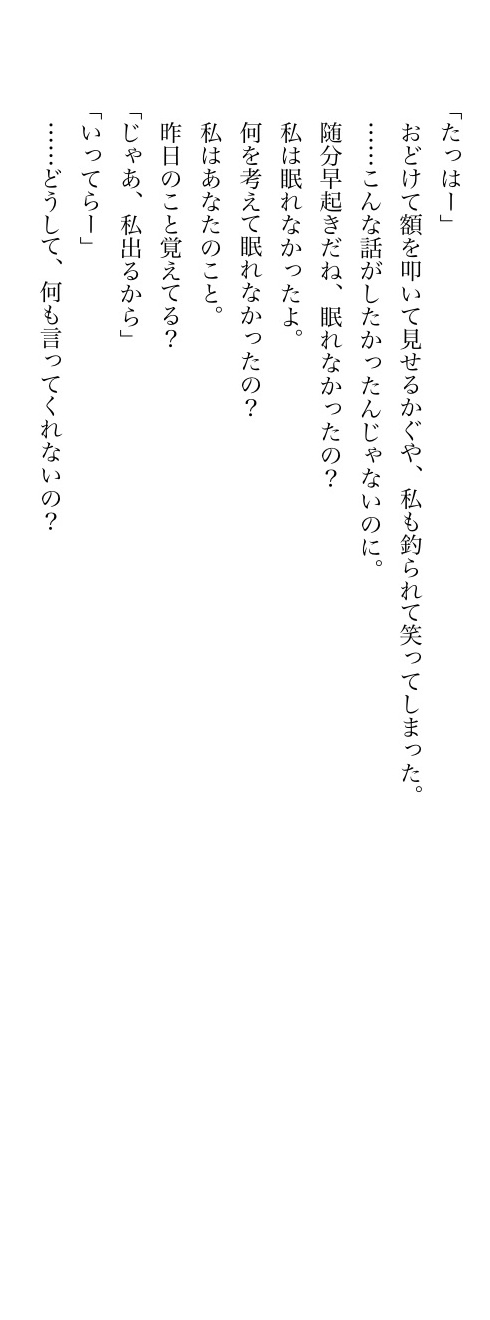 「たっはー」
おどけて額を叩いて見せるかぐや、私も釣られて笑ってしまった。
……こんな話がしたかったんじゃないのに。
随分早起きだね、眠れなかったの？
私は眠れなかったよ。
何を考えて眠れなかったの？
私はあなたのこと。
昨日のこと覚えてる？
「じゃあ、私出るから」
「いってらー」
……どうして、何も言ってくれないの？